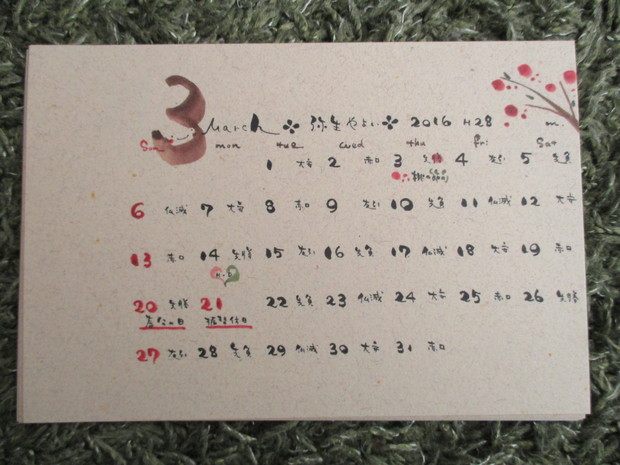 3 March 弥生やよい 2016 H28
Sun mon tue wed thu fri Sat
1 大安 2 赤口 3 先勝 4 友引 5 先負
6 仏滅 7 大安 8 赤口 9 友引 10 先負 11 仏滅 12 大安
13 赤口 14 先勝 15 友引 16 先負 17 仏滅 18 大安 19 赤口
20 先勝 21 22 先負 23 仏滅 24 大安 25 赤口 26 先勝
春分の日 振替休日
27 友引 28 先負 29 仏滅 30 大安 31 赤口